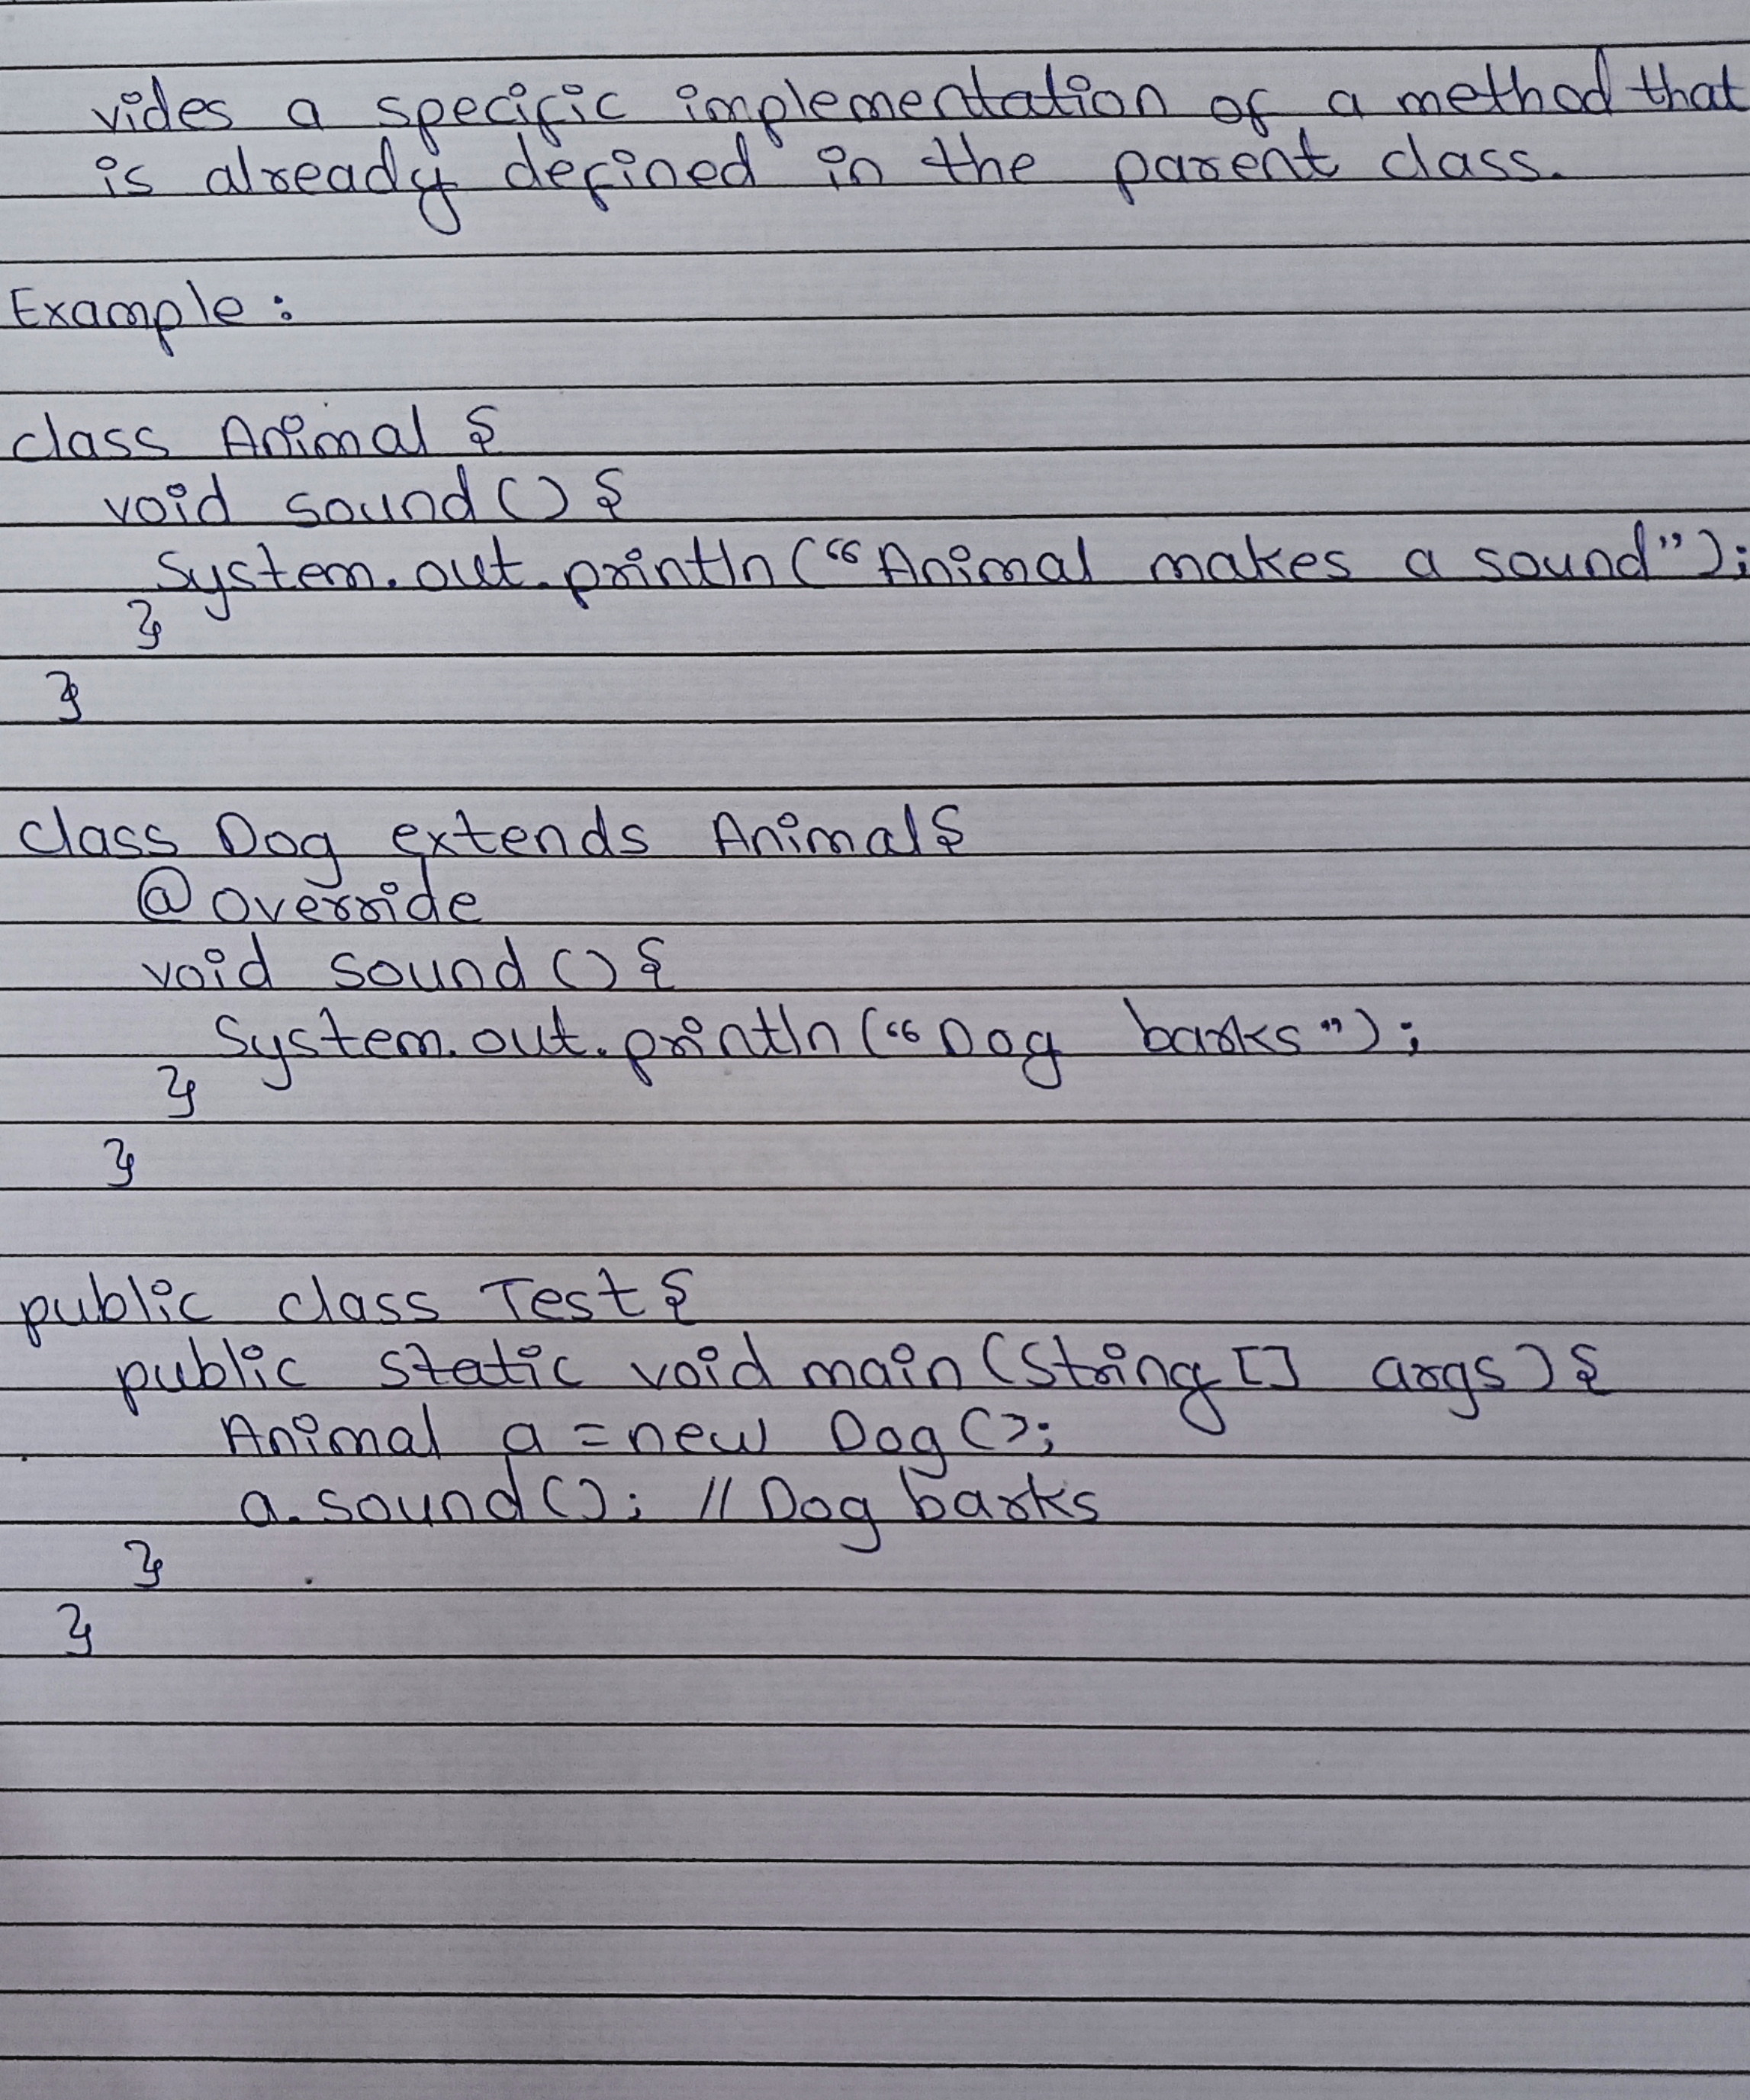 vides a specific implementation of a method that
is already defined in the parent class.
Example:
class Animal {
void sound() {
System.out.println(“Animal makes a sound”);
}
}
class Dog extends Animal{
@override
void sound() {
System.out.println(“Dog barks”);
}
}
public class Test {
public static void main(String[] args) {
Animal a = new Dog();
a.sound(); // Dog barks
}
}